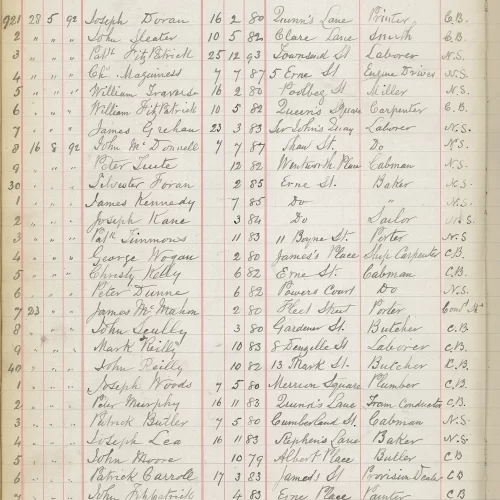 921 28 5 92 Joseph Doran 16 2 80 Quinn's Lane Printer C.B.
2 " " " John Sleater 10 5 82 Clare Lane Smith C.B.
3 " " " Patk FitzPatrick 25 12 93 Townsend St Laborer N.S.
4 " " " Chs Maguiness 7 7 87 5 Erne St Engine Driver N.S.
5 " " " William Traverse 16 2 80 Poolbeg St Miller N.S.
6 " " " William FitzPatrick 10 5 82 Queen's Square Carpenter C.B.
7 " " " James Grehan 23 3 83 Sir John's Quay Laborer N.S.
8 16 8 92 John McDonnell 7 7 87 Shaw St. Do N.S.
9 " " " Peter Tuite 12 82 Wentworth Place Cabman N.S.
30 " " " Silvester Foran 2 85 Erne St. Baker N.S.
1 " " " James Kennedy 7 85 Do " N.S.
2 " " " Joseph Kane 3 84 Do Sailor N.S.
3 " " " Patk Timmons 11 83 11 Boyne St. Porter N.S.
4 " " " George Wogan 2 80 James's Place Ship Carpenter C.B.
5 " " " Christy Kelly 6 82 Erne St. Cabman C.B.
6 " " " Peter Dunne 6 82 Powers Court Do N.S.
7 23 " " James McMahon 2 80 Fleet Street Porter
8 " " " John Scully 3 80 Gardner St. Butcher C.B.
9 " " " Mark Reilly 10 83 8 Denzille St Laborer C.B.
40 " " " John Reilly 10 82 13 Mark St. Butcher C.B.
1 " " " Joseph Woods 7 5 80 Merrion Square Plumber C.B.
2 " " " Peter Murphy 16 11 83 Quinn's Lane Tram Conductor C.B.
3 " " " Patrick Butler 7 5 80 Cumberland St. Cabman N.S.
4 " " " Joseph Lea 16 11 83 Stephen's Lane Baker N.S.
5 " " " John Moore 10 79 Albert Place Butler C.B
6 " " " Patrick Carroll 17 3 83 James's St Provision Dealer C.B
7 " " " John Fitzpatrick 4 83 Erne Place Painter C.B.